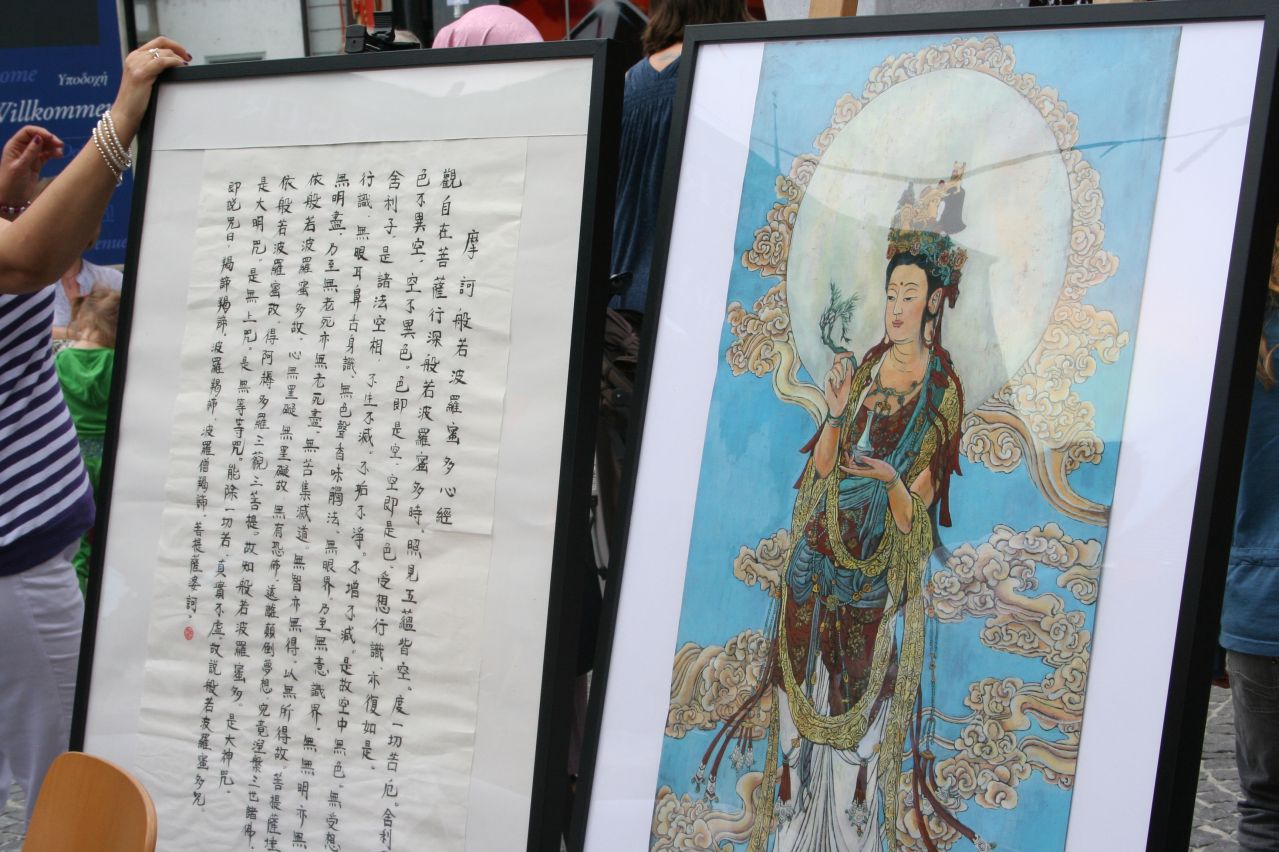 Υποδοχή
Willkommen
摩訶般若波羅蜜多心經
觀自在菩薩行深般若波羅蜜多時。照見五蘊皆空。度一切苦厄。舍利
色不異空。空不異色。色即是空。空即是色。受想行識、亦復如是。
舍利子是諸法空相、不生不滅。不垢不淨。不增不減。是故空中無色。無受想
行識、無眼耳鼻舌身識、無色聲香味觸法、無眼界乃至無意識界、無無明亦無
無明盡、乃至無老死亦無老死盡。無苦集滅道。無智亦無得。以無所得故。菩提薩埵
依般若波羅蜜多故、心無罣礙、無罣礙故、無有恐怖、遠離顛倒夢想。究竟涅槃三世諸佛、
依般若波羅蜜故、得阿耨多羅三藐三菩提。故知般若波羅蜜多。是大神咒。
是大明咒。是無上咒。是無等等咒。能除一切苦、真實不虛。故說般若波羅蜜多咒
即說咒曰、揭諦揭諦。波羅揭諦、波羅僧揭諦、菩提薩婆訶。